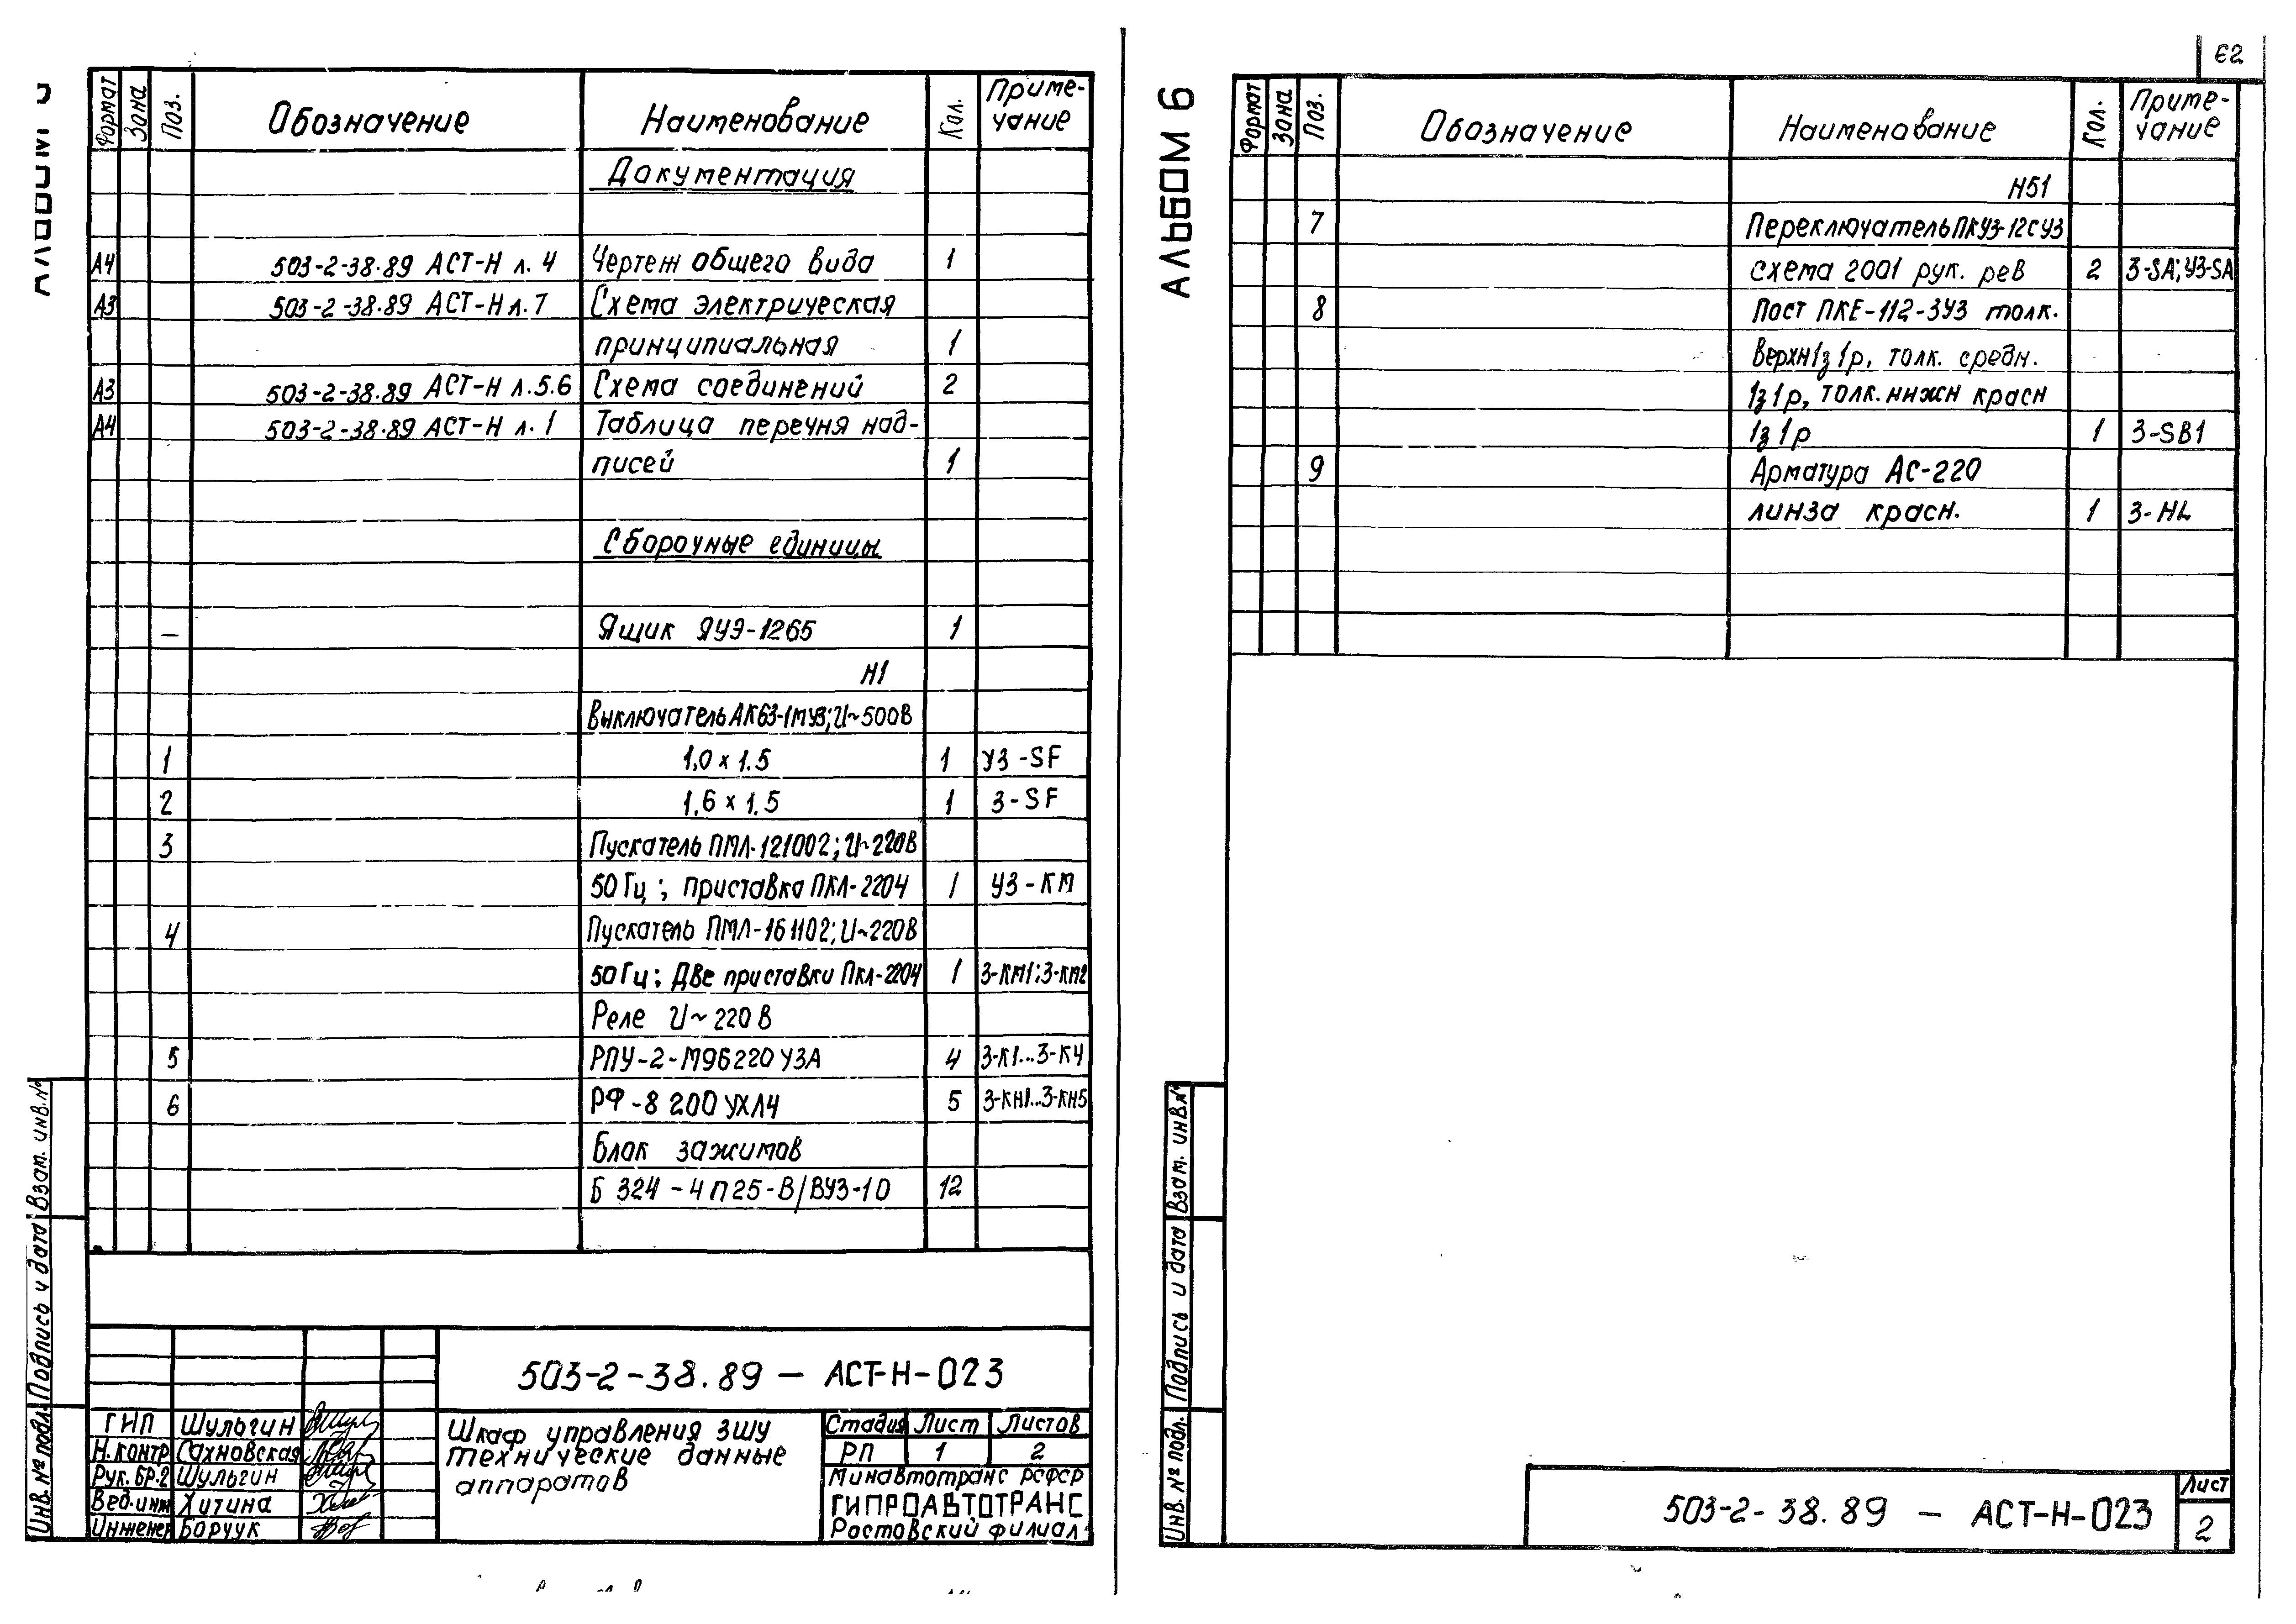 Формат Зона Поз. Обозначение Наименование Кол. Приме-
чание
Документация
А4 503-2-38.89 АСТ-Н л. 4 Чертеж общего вида 1
А3 503-2-38.89 АСТ-Н л. 7 Схема электрическая
принципиальная 1
А3 503-2-38.89 АСТ-Н л.5.6 Схема соединений 2
А4 503-2-38.89 АСТ-Н л. 1 Таблица перечня над-
писей 1
Сборочные единицы
– Ящик ЯУЭ-1265 1
Н1
Выключатель АК63-1МУ3; U~500В
1 1,0 х 1.5 1 У3-SF
2 1,6 х 1,5 1 3-SF
3 Пускатель ПМЛ-121002; U~220В
50 Гц ; приставка ПКЛ-2204 1 У3-КМ
4 Пускатель ПМЛ-161102; U~220В
50 Гц: Две приставки ПКЛ-2204 1 3-КМ1:3-КМ2
Реле U~220 В
5 РПУ-2-М96220 У3А 4 3-К1...3-К4
6 РФ-8 200 УХЛ4 5 3-КН1...3-КН5
Блок зажимов
Б 324-4П25-В/ВУ3-10 12
503-2-38.89 – АСТ-Н-023
ГИП Шульгин
Н.контр Сахновская
Рук. БР.2 Шульгин
Вед.инж Хитина
Инженер Борчук
Шкаф управления 3ШУ
технические данные
аппаратов
Стадия Лист Листов
РП 1 2
Минавтотранс РСФСР
ГИПРОАВТОТРАНС
Ростовский филиал
Инв. № подл. Подпись и дата Взам. инв.№
62
АЛЬБОМ 6
Формат Зона Поз. Обозначение Наименование Кол. Приме-
чание
Н51
7 Переключатель ПКУ3-12СУ3
схема 2001 рук. рев 2 3-SA; У3-SA
8 Пост ПКЕ-112-3У3 толк.
верхн 1з 1р, толк. средн.
1з 1р, толк. нижн красн
1з 1р 1 3-SB1
9 Арматура АС-220
линза красн. 1 3-HL
Инв. № подл. Подпись и дата Взам. инв.№
503-2-38.89 – АСТ-Н-023
Лист
2